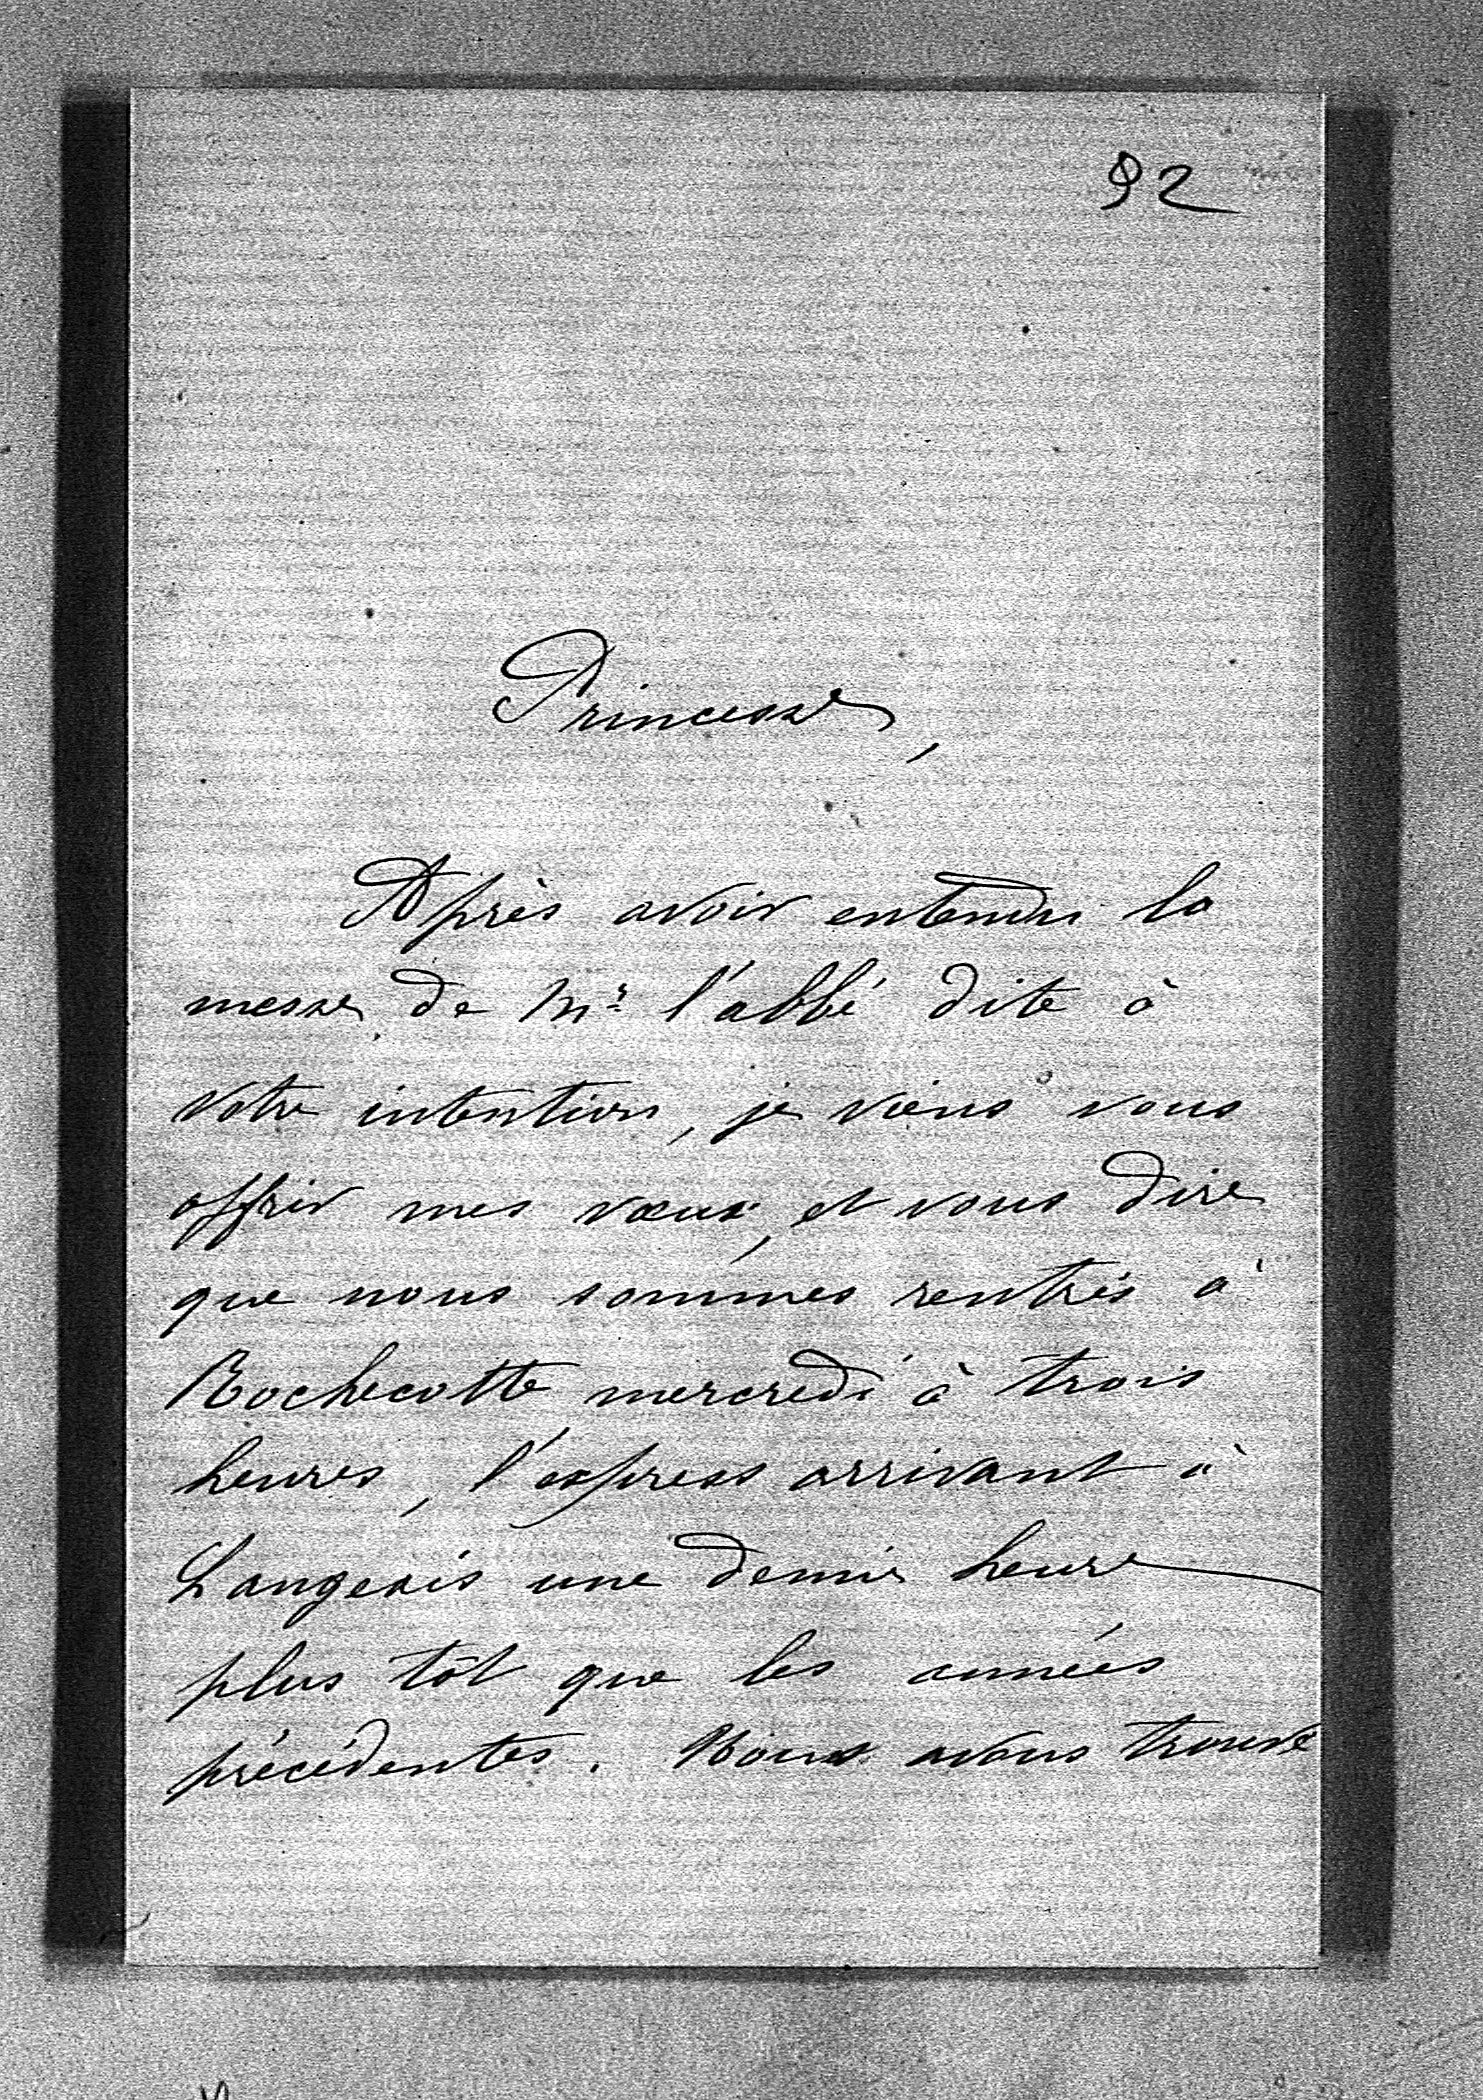 92
Princesse,
Après avoir entendu la
messe de Mr. l'abbé dite à
votre intention, je viens vous
offrir mes vœux, et vous dire
que nous sommes rentrés à
Rochecotte mercredi à trois
heures, l'express arrivant à
Langeais une demie heure
plus tôt que les années
précédentes. Nous avons trouvé